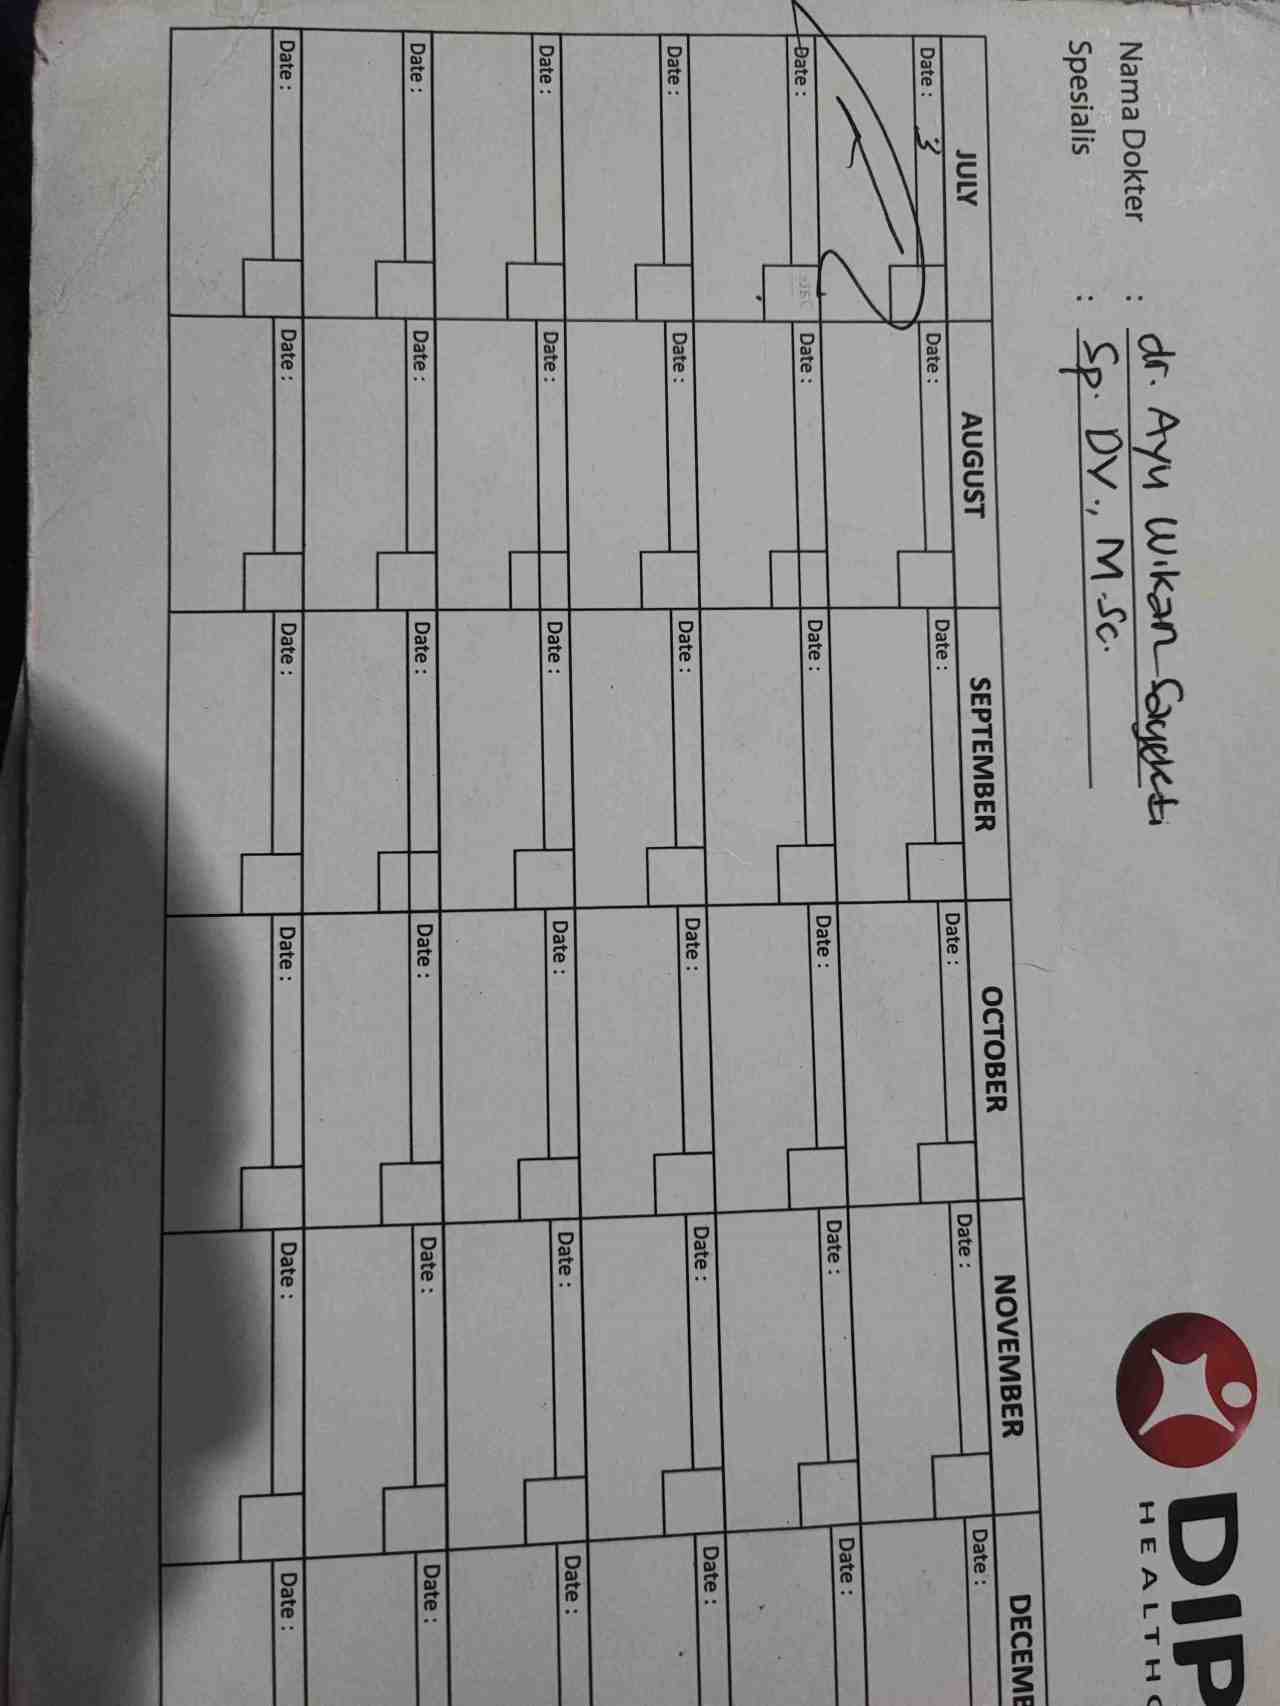 DIP
HEALTHC
Nama Dokter : dr. Ayu Wikan Sayekti
Spesialis : Sp. DV., M.Sc.
JULY AUGUST SEPTEMBER OCTOBER NOVEMBER DECEMB
Date : 3 Date : Date : Date : Date : Date :
Date : Date : Date : Date : Date : Date :
Date : Date : Date : Date : Date : Date :
Date : Date : Date : Date : Date : Date :
Date : Date : Date : Date : Date : Date :
Date : Date : Date : Date : Date : Date :